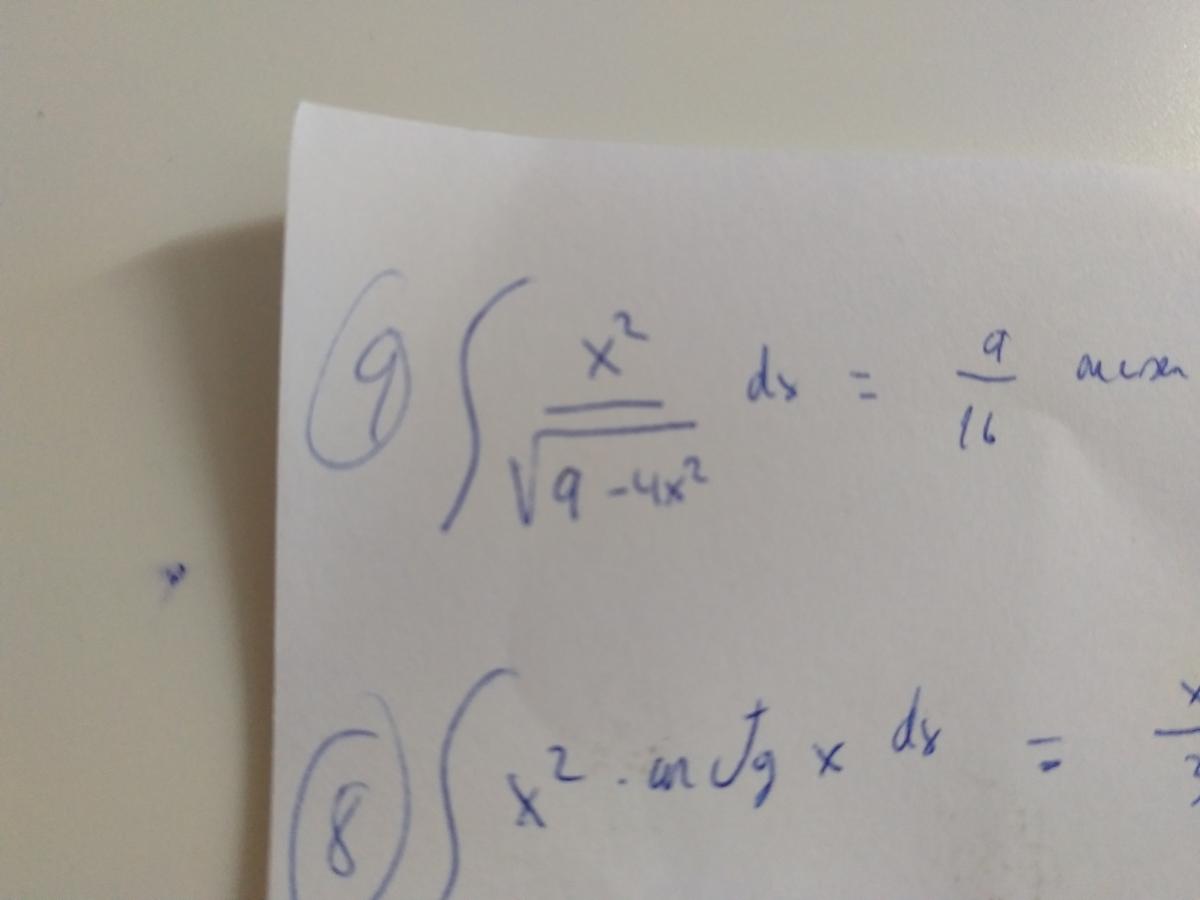 9 ∫ x² / √(9 - 4x²) dx = 9/16 arcsen
8 ∫ x² · arctg x dx = x